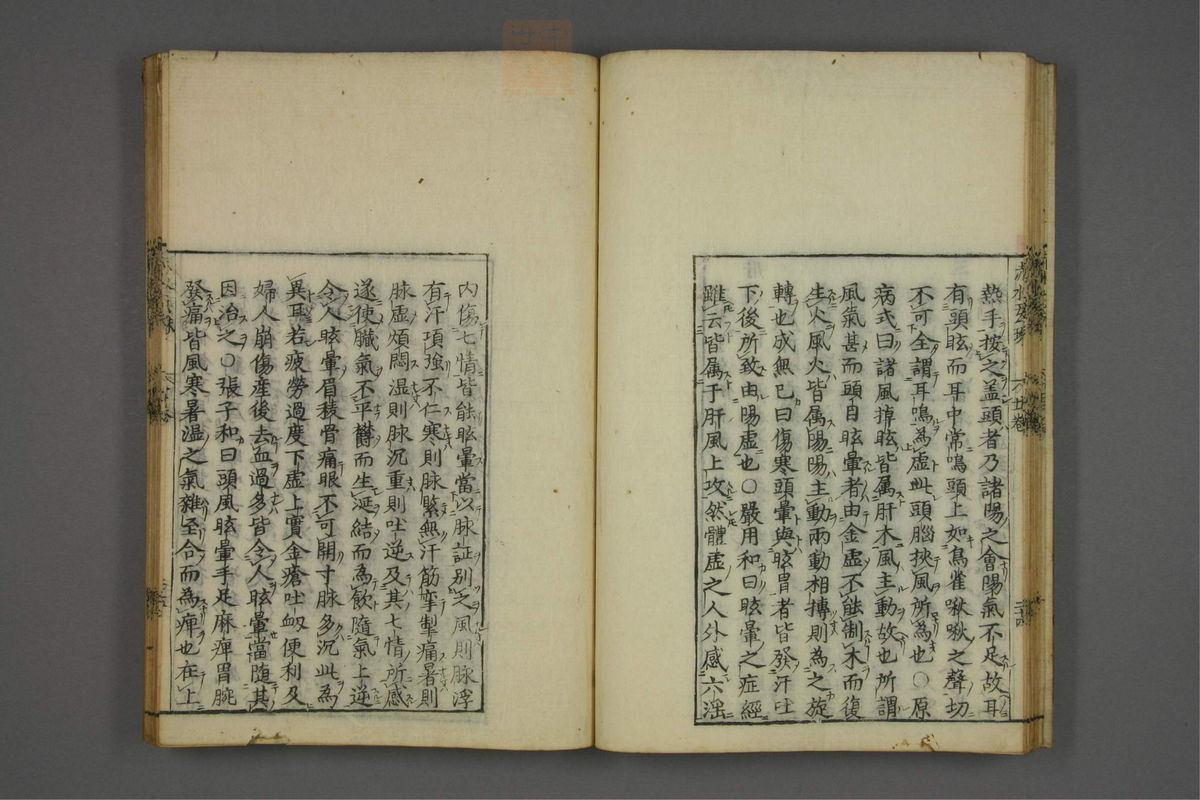 熱手按之蓋頭者乃諸陽之會陽氣不足故耳
有頭眩而耳中常鳴頭上如鳥雀啾啾之聲切
不可全謂耳鳴為虛此頭腦挾風所為也○原
病式曰諸風掉眩皆属肝木風主動故也所謂
風氣甚而頭目眩暈者由金虛不能制木而復
生火風火皆属陽陽主動兩動相摶則為之旋
轉也成無已曰傷寒頭暈與眩冒者皆發汗吐
下後所致由陽虛也○嚴用和曰眩暈之症經
雖云皆属于肝風上攻然體虛之人外感六淫
内傷七情皆能眩暈當以脉証別之風則脉浮
有汗項強不仁寒則脉緊無汗筋攣掣痛暑則
脉虛煩悶湿則脉沉重則吐逆及其七情所感
遂使臟氣不平欝而生涎結而為飲隨氣上逆
令人眩暈眉稜骨痛眼不可開寸脉多沉此為
異耳若疲勞過度下虛上實金瘡吐衂便利及
婦人崩傷産後去血過多皆令人眩暈當随其
因治之○張子和曰頭風眩暈手足麻痺胃脘
發痛皆風寒暑湿之氣雜至合而為痺也在上